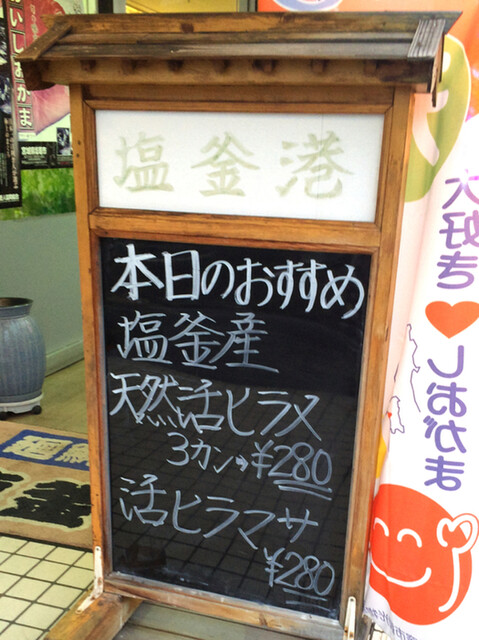 塩釜港
本日のおすすめ
塩釜産
天然活ヒラメ
3カン→¥280
活ヒラマサ
¥280
しおがま